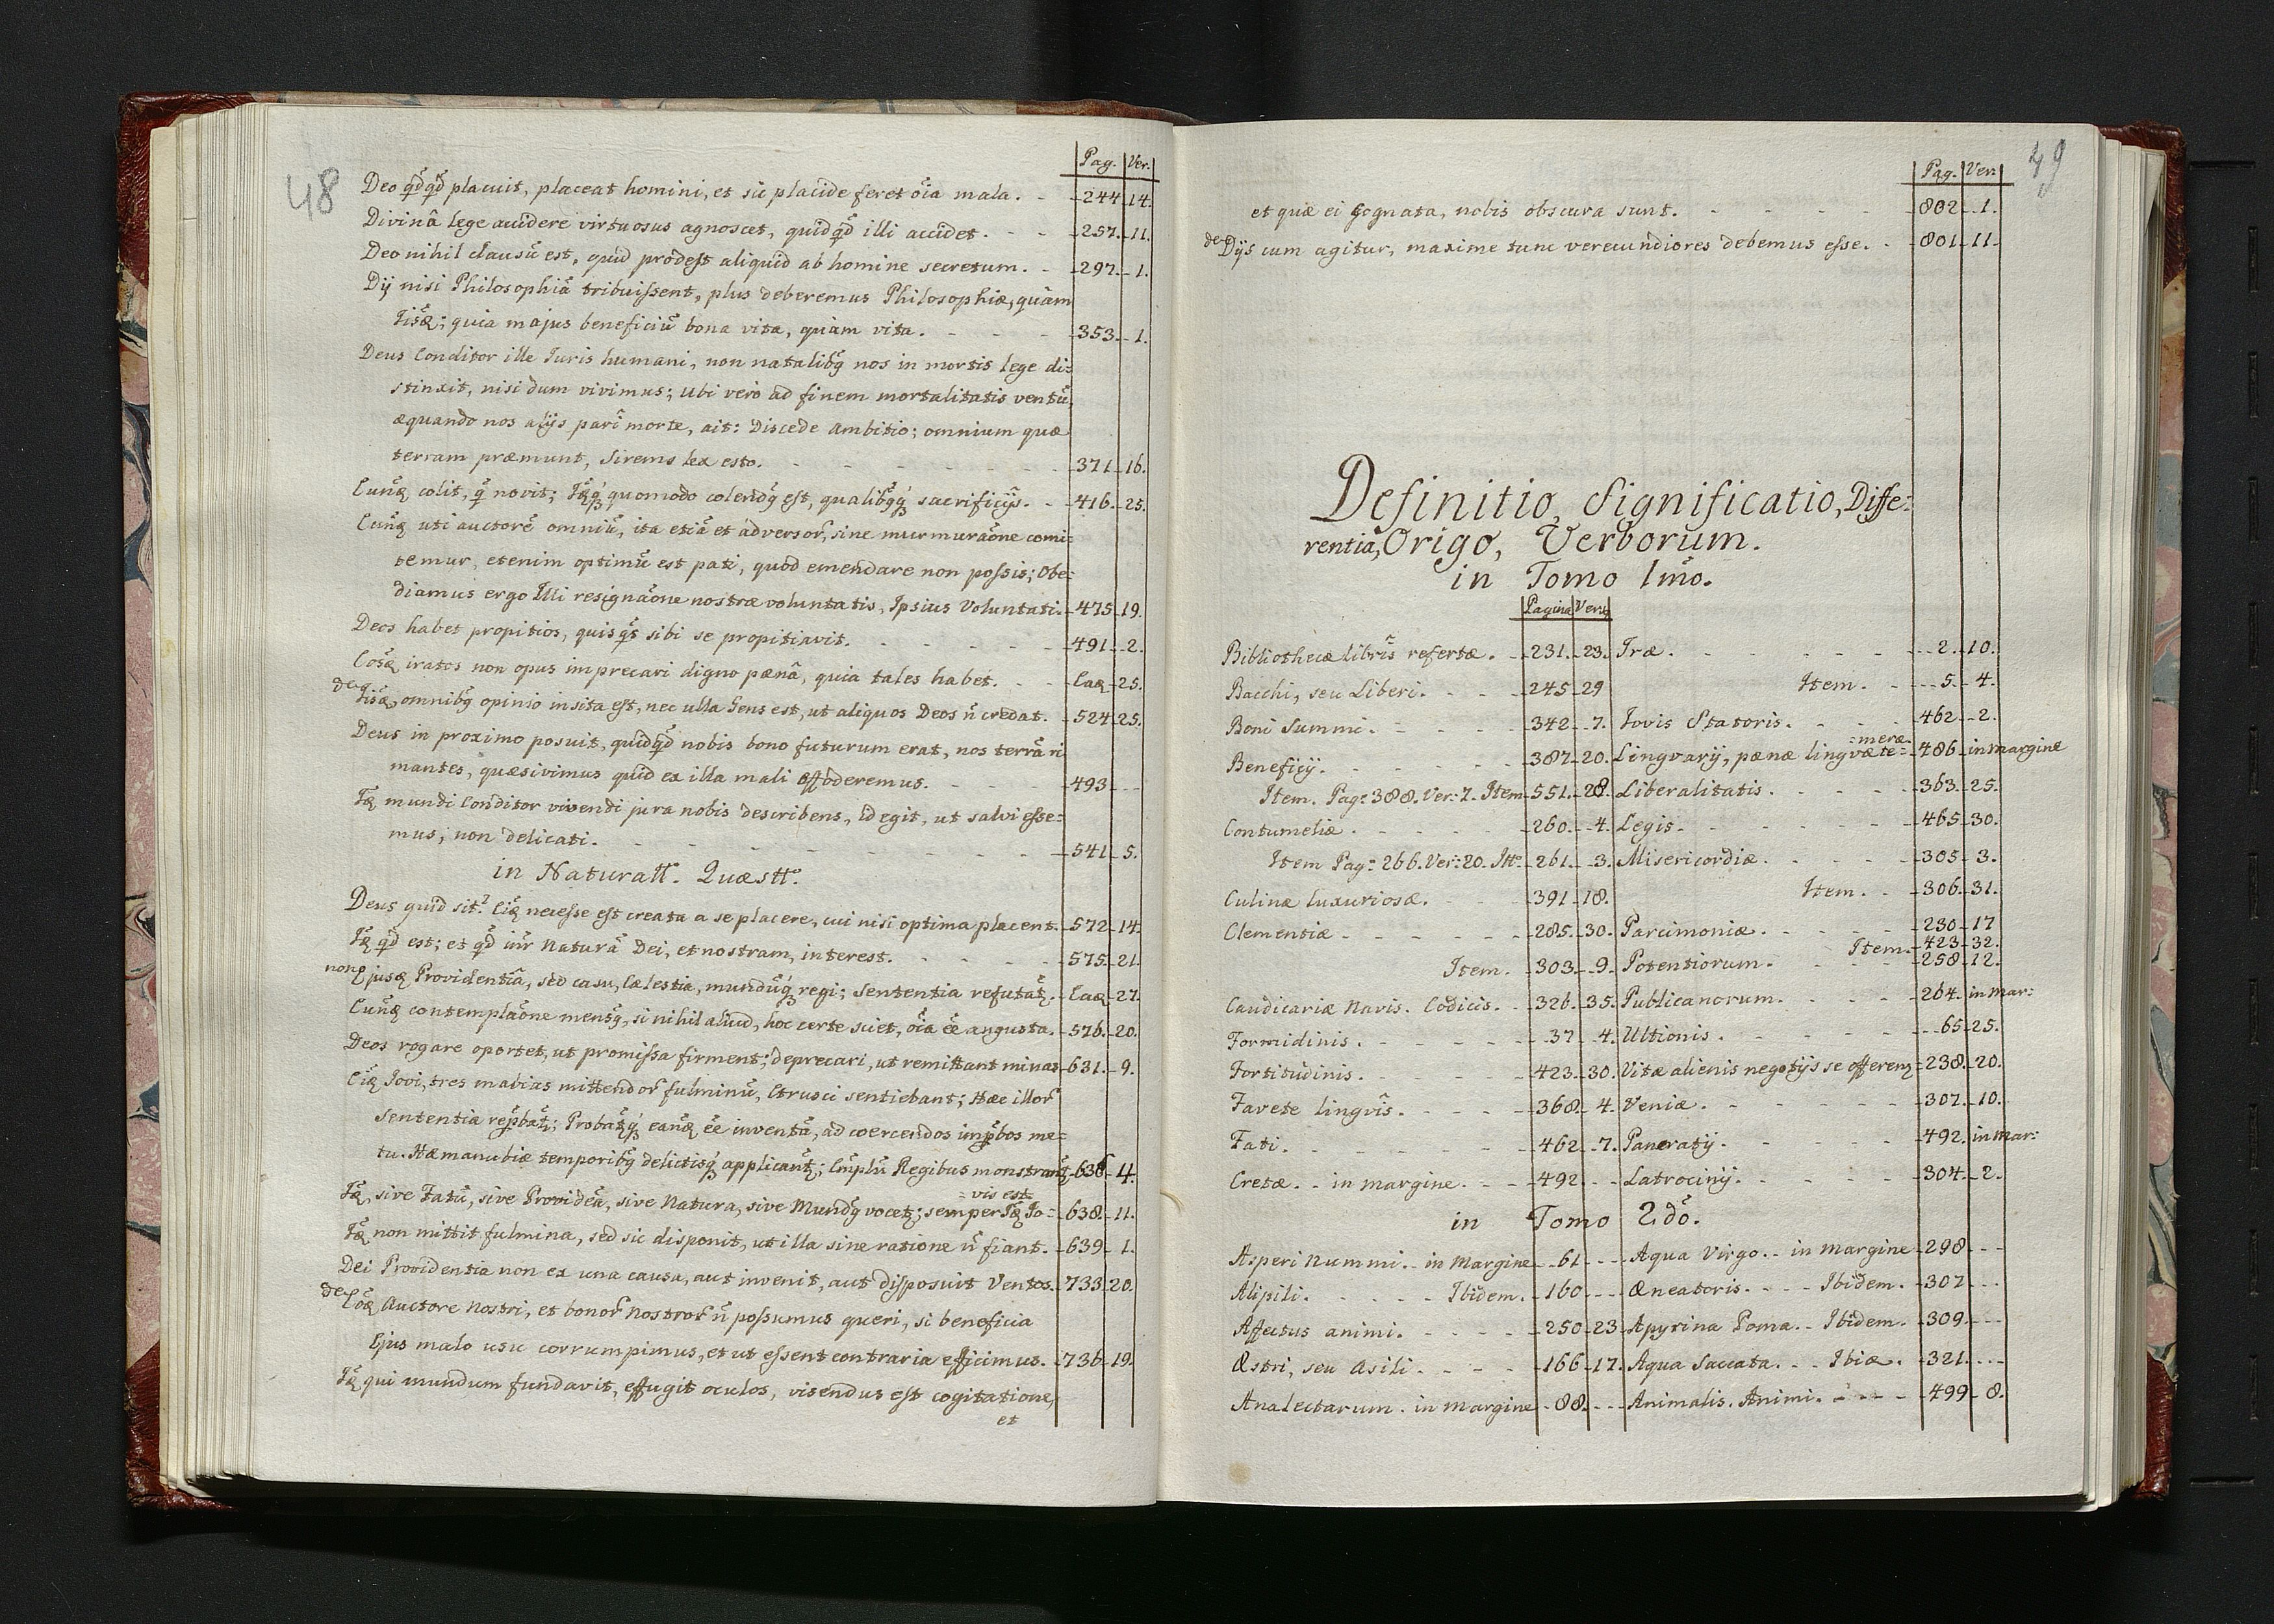 48
Pag. Ver.
Deo qdqd placuit, placeat homini, et sic placide feret oia mala. - 244. 14.
Divinâ lege accidere virtuosus agnoscet, quidqd illi accidet. - - 257. 11.
Deo nihil clausũ est, quid prodest aliquid ab homine secretum. - 297. 1.
Dij nisi Philosophiã tribuissent, plus deberemus Philosophiæ, quàm
; quia majus beneficiũ bona vita, quàm vita. - - - 353. 1.
Deus Conditor ille Juris humani, non natalibq nos in mortis lege di=
stinxit, nisi dum vivimus; Ubi verò ad finem mortalitatis ventũ,
æquando nos alijs pari morte, ait: Discede Ambitio; omnium quæ
terram præmunt, Sirems lex esto. - - - - - - - 371. 16.
colit, q novit; quomodo colendq est, qualibqq sacrificijs. - 416. 25.
uti auctorẽ omniũ, ita etiã et adversor, sine murmuraõne comi=
temur, etenim optimũ est pati, quod emendare non possis; Obe=
diamus ergo Illi resignaõne nostræ voluntatis, Ipsius Voluntati. 475. 19.
Deos habet propitios, quisqs sibi se propitiavit. - - - - - 491. 2.
iratos non opus imprecari digno pænâ, quia tales habet. - - Eaq 25.
de omnibq opinio insita est, nec ulla Gens est, ut aliquos Deos ñ credat. 524. 25.
Deus in proximo posuit, quidqd nobis bono futurum erat, nos terrã ri
mantes, quæsivimus quid ex illa mali effoderemus. - - - - 493 - -
mundi Conditor vivendi jura nobis describens, id egit, ut salvi esse=
mus, non delicati. - - - - - - - - - 541. 5.
in Naturall. Quæstt.
Deus quid sit? necesse est creata a se placere, cui nisi optima placent. 572. 14.
qd est; et qd inr Naturã Dei, et nostram, interest. - - - - 575. 21.
non ejusq Providentiâ, sed casu, Cælestia, mundũq regi; Sententia refutat. Eaq 27.
contemplaõne mensq, si nihil aliud, hoc certe sciet, oia eẽ angusta. 576. 20.
Deos rogare oportet, ut promissa firment; deprecari, ut remittant minas 631. 9.
Jovi, tres mabias mittendor fulminũ, Etrusci sentiebant; Hæc illor
Sententia repbat; Probatq eanq eẽ inventã, ad coercendos impbos me=
tu. Hæ manubiæ temporibq delictisq applicant; Regibus monstrant 638. 4.
=vis est.
sive Fatũ, sive Providẽa, sive Natura, sive Mundq vocet; semper Jo= 638. 11.
non mittit fulmina, sed sic disponit, ut illa sine ratione ñ fiant. 639. 1.
Dei Providentia non ex una causa, aut invenit, aut disposuit Ventos. 733. 20.
de Auctore Nostri, et bonor Nostror ñ possumus queri, si beneficia
Ejus malo usu corrumpimus, et ut essent contraria efficimus. 736. 19.
qui mundum fundavit, effugit oculos, visendus est cogitatione,
et
49
Pag. Ver.
et quæ ei gognata, nobis obscura sunt. - - - - - 802. 1.
de Dijs cum agitur, maxime tunc verecundiores debemus esse. - 801. 11.
Definitio, Significatio, Diffe=
rentia, Origo, Verborum.
in Tomo 1mo.
Pagina Versq
Bibliothecæ libris refertæ. 231. 23. Iræ. - - - - - - 2. 10.
Bacchi, seu Liberi. - - - 245. 29 Item. - - 5. 4.
Boni Summi. - - - - 342. 7. Jovis Statoris. - - - 462. 2.
=meræ.
Beneficij. - - - - - 387. 20. Lingvarij, pænæ lingvæ te= 486. in margine
Item. Pag: 388. Ver: 7. Item 551. 28. Liberalitatis. - - - - 363. 25.
Contumeliæ. - - - - 260. 4. Legis. - - - - - - 465. 30.
Item Pag: 266. Ver: 20. Itt. 261. 3. Misericordiæ. - - - - 305. 3.
Culinæ luxuriosæ. - - - 391. 18. Item. - - 306. 31.
Clementiæ - - - - - 285. 30. Parcimoniæ. - - - - 230. 17
Item. 423. 32.
Item. 303. 9. Potentiorum. - - - - 258. 12.
Caudicariæ Navis. Codicis. - 326. 35. Publicanorum. - - - - 264. in mar:
Formidinis. - - - - - 37 4. Ultionis. - - - - - 65. 25.
Fortitudinis. - - - - 423. 30. Vitæ alienis negotijs se offerenq 238. 20.
Favete lingvis. - - - - 368. 4. Veniæ. - - - - - 307. 10.
Fati. - - - - - - 462. 7. Pancratij. - - - - 492. in mar:
Cretæ. - - in margine. - - 492. - - Latrocinij. - - - - 304. 2.
in Tomo 2dõ.
Asperi Nummi. - in Margine 61. - - Aqua Virgo. - in Margine 298. - -
Alipili. - - - - Ibidem. 160. - - Æneatoris. - - - Ibidem. 307. - -
Affectus animi. - - - - 250. 23. Apyrina Poma. - Ibidem. 309. - -
Æstri, seu Asili. - - - 166. 17. Aqua Saccata. - - Ibiæ. 321. - -
Analectarum. in margine 88. - - Animalis. Animi. - - - 499. 8.